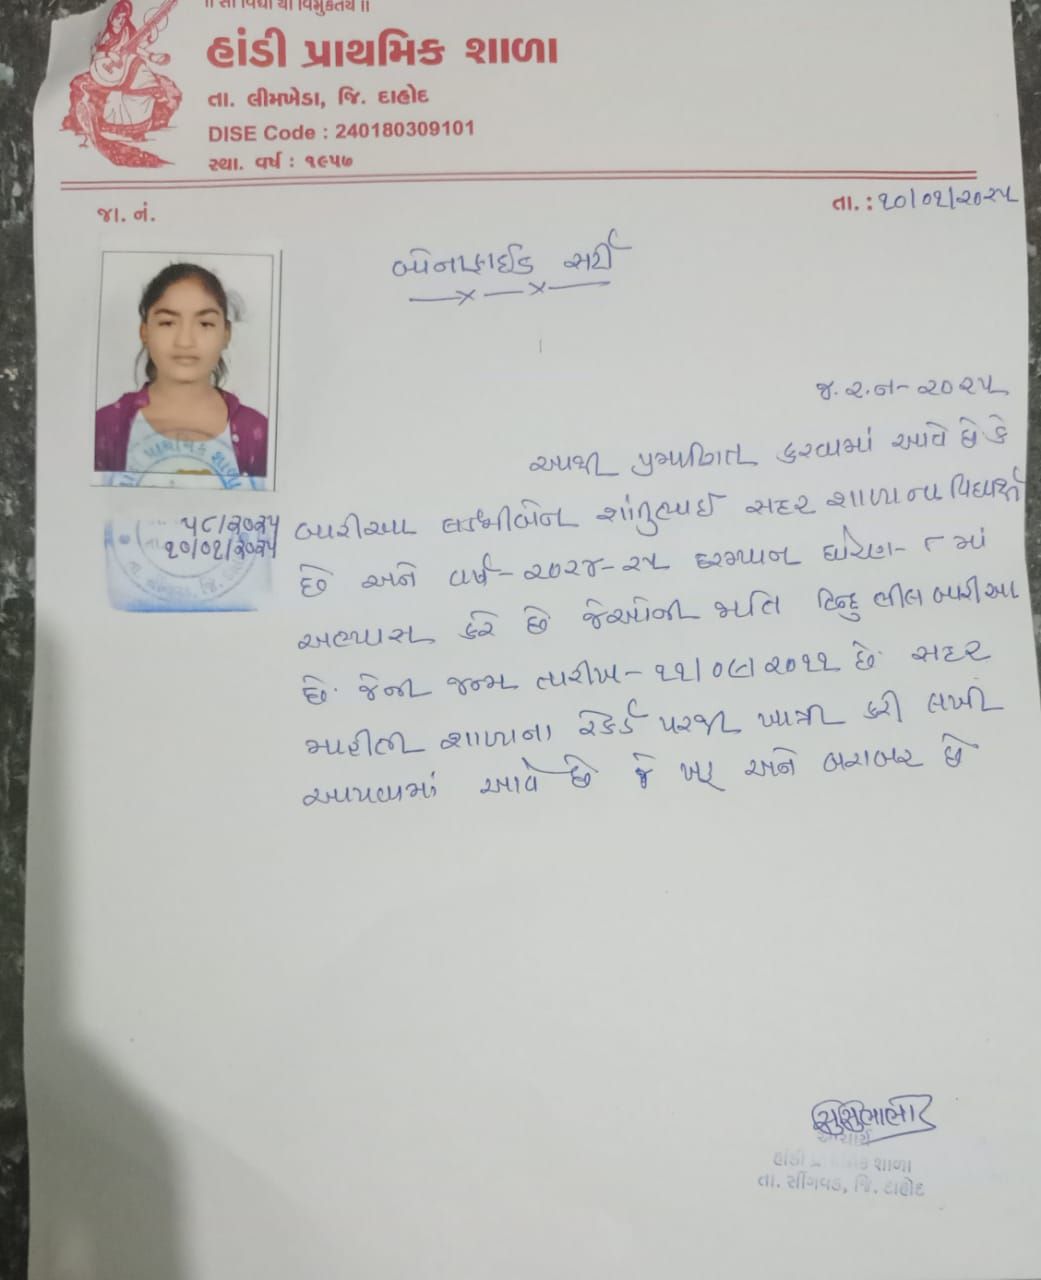 ॥ સા વિદ્યા યા વિમુક્તયે ॥
હાંડી પ્રાથમિક શાળા
તા. લીમખેડા, જિ. દાહોદ
DISE Code : 240180309101
સ્થા. વર્ષ : ૧૯૫૭
જા. નં.
તા. : ૨૦/૦૧/૨૦૨૫
બોનાફાઈડ સર્ટી
જ.ર.ન - ૨૦૨૫
આથી પ્રમાણિત કરવામાં આવે છે કે
બારીઆ લક્ષ્મીબેન શાંતુભાઈ સદર શાળાના વિદ્યાર્થી
છે અને વર્ષ - ૨૦૨૪-૨૫ દરમ્યાન ધોરણ - ૮ માં
અભ્યાસ કરે છે જેઓની જાતિ હિન્દુ ભીલ બારીઆ
છે. જેની જન્મ તારીખ - ૧૧/૦૮/૨૦૧૧ છે. સદર
માહીતી શાળાના રેકર્ડ પરથી ખાત્રી કરી લખી
આપવામાં આવે છે જે ખરૂ અને બરાબર છે
પ્રાથમિક શાળા
૫૮/૨૦૨૫
૨૦/૦૧/૨૦૨૫
આચાર્ય
હાંડી પ્રાથમિક શાળા
તા. સીંગવડ, જિ. દાહોદ